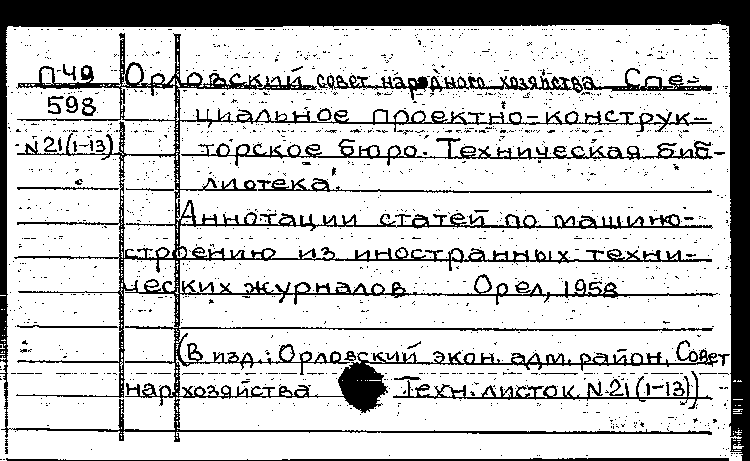 П49 Орловский совет народного хозяйства. Спе-
598 циальное проектно-конструк-
N21(1-13) торское бюро. Техническая биб-
лиотека.
Аннотации статей по машино-
строению из иностранных техни-
ческих журналов. Орел, 1958
(В изд.: Орловский экон. адм. район. Совет
нар. хозяйства. Техн. листок N21(1-13))